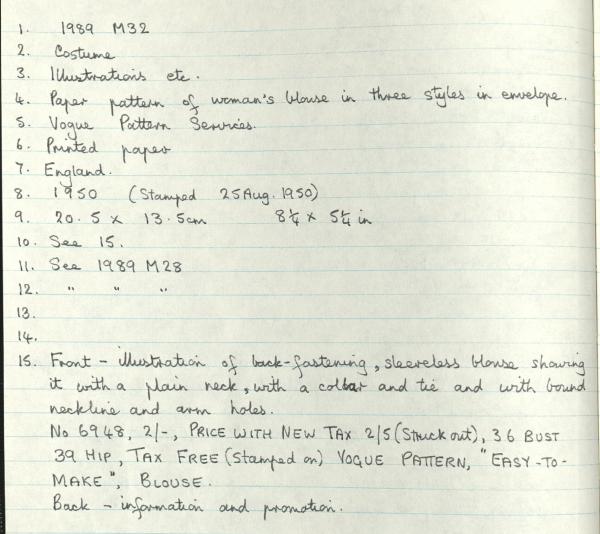 1. 1989 M32
2. Costume
3. Illustrations etc.
4. Paper pattern of woman's blouse in three styles in envelope.
5. Vogue Pattern Services.
6. Printed paper
7. England.
8. 1950 (Stamped 25 Aug. 1950)
9. 20.5 x 13.5cm 8¼ x 5¼ in
10. See 15.
11. See 1989 M28
12. " " "
13.
14.
15. Front - illustration of back-fastening, sleeveless blouse showing
it with a plain neck, with a collar and tie and with bound
neckline and arm holes.
No 6948, 2/-, PRICE WITH NEW TAX 2/5 (Struck out), 36 BUST
39 HIP, TAX FREE (Stamped on) VOGUE PATTERN, "EASY-TO-
MAKE", BLOUSE.
Back - information and promotion.